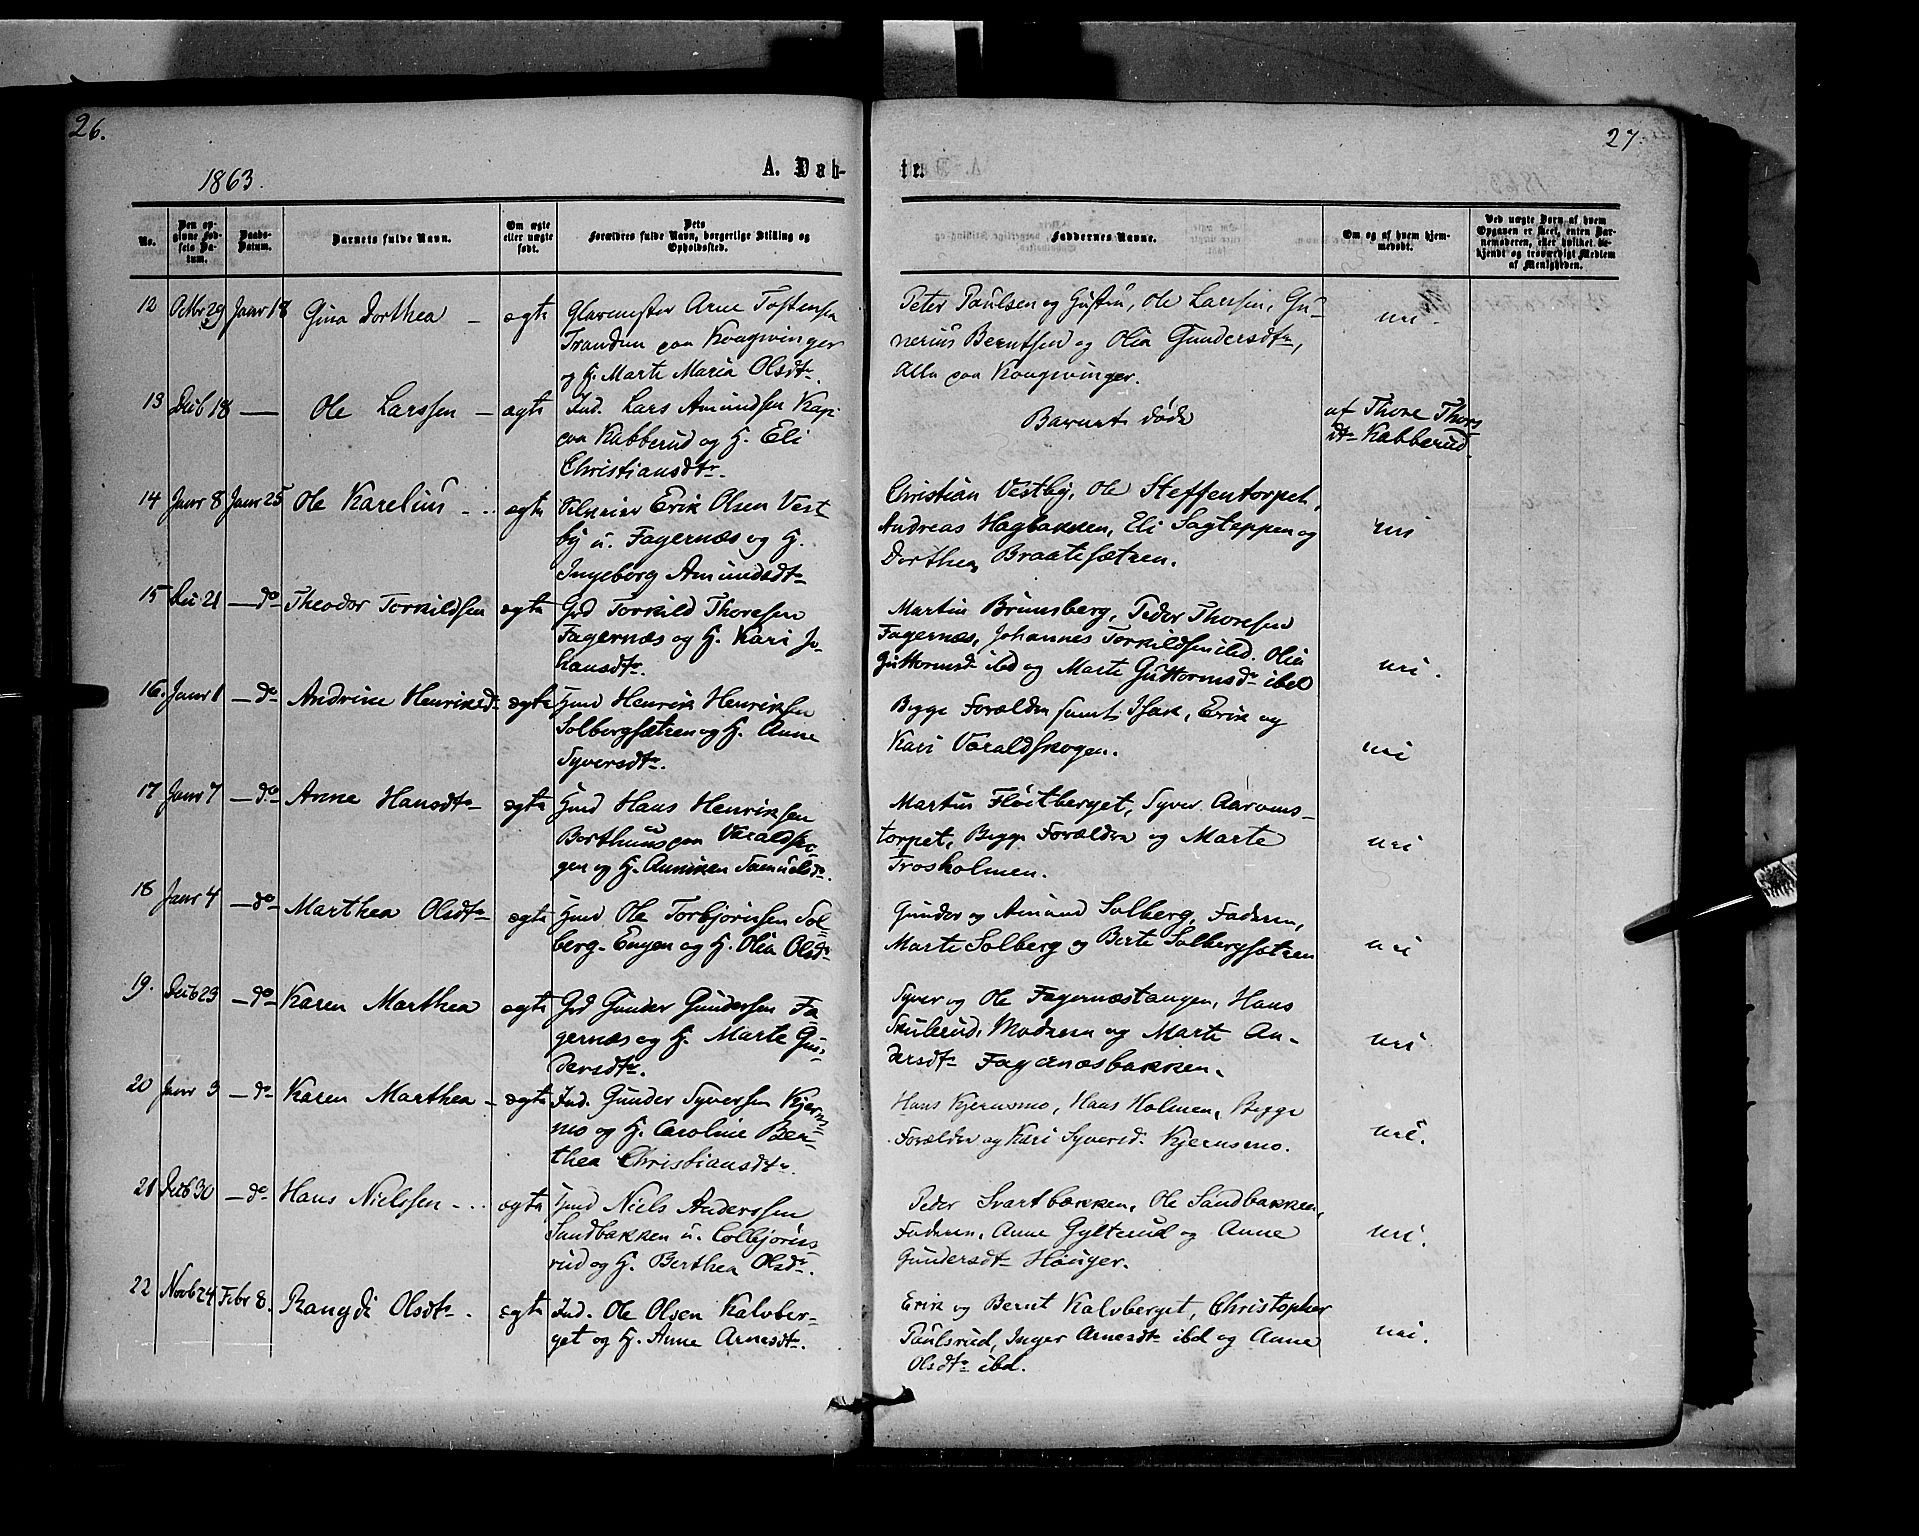 26.
27.
1863.
A. Døb-
te.
No.
Den op-
givne Fød-
sels Da-
tum.
Daabs-
Datum.
Barnets fulde Navn.
Om ægte
eller uægte
født.
Dets
Forældres fulde Navn, borgerlige Stilling og
Opholdssted.
Faddernes Navne.
Om og af hvem hjem-
medøbt.
Ved uægte Børn af hvem
Opgaven er skeet, enten Bar-
nemoderen, eller hvilket be-
kjendt og troværdigt Medlem
af Menigheden.
12 Octbr 29 Janr 18 Gina Dorthea – ægte
Glarmester Arne Tostensen
Tranden paa Kongsvinger
og H. Marte Maria Olsdtr.
Peter Paulsen og Hustru, Ole Larssen, Gu-
nerius Berntsen og Olia Gundersdtr,
Alle paa Kongsvinger.
nei.
13 Decb 18 — Ole Larssen – ægte
Ind. Lars Amundsen
paa Kabberud og H. Eli
Christiansdtr.
Barnet døde
af Thore Thors
dtr Kabberud.
14 Janr 8 Janr 25 Ole Karelius – ægte
Erik Olsen Vest
by u. Fagernæs og H.
Ingeborg Amundsdtr
Christian Vestby, Ole Steffentorpet,
Andreas Hagbakken, Eli Sagteppen og
Dorthea Braatesætren.
nei
15 Dec 21 – do Theodor Torkildsen ægte
Grd Torkild Thoresen
Fagernæs og H. Kari Jo-
hansdtr.
Martin Brunsberg, Peder Thoresen
Fagernæs, Johannes Torkildsen ibd. Olia
Guttormsdr ibd og Marte Guttormsdr ibd
nei.
16. Janr 1 – do Andrine Henriksdr ægte
Hmd Henrik Henriksen
Solbergsætren og H. Anne
Syversdtr.
Begge Forældre samt Isak, Erik og
Kari Varaldskogen.
nei
17 Janr 7 – do Anne Hansdtr – ægte
Hmd Hans Henriksen
Berthuus paa Varaldsko-
gen og H. Anniken Samuelsdr.
Martin Fløitberget, Syver Aarons-
torpet, Begge Forældre og Marte
Frosholmen.
nei
18 Janr 4 – do – Marthea Olsdtr – ægte
Hmd Ole Torbjørnsen Sol-
berg-Engen og H. Olia Olsdr
Gunder og Amund Solberg, Faderen,
Marte Solberg og Berte Solbergsætren
nei
19. Decb 23 – do Karen Marthea ægte
Grd Gunder Gundersen Fa
gernæs og H. Marte Gun-
dersdtr.
Syver og Ole Fagernæstangen, Hans
Skulerud, Moderen og Marte An-
dersdtr Fagernæsbakken.
nei
20 Janr 3 – do Karen Marthea – ægte
Ind. Gunder Syversen Kjerns-
mo og H. Caroline Ber-
thea Christiansdtr.
Hans Kjernsmo, Hans Holmen, Begge
Forældre og Kari Syversd. Kjernsmo.
nei.
21 Decb 30 – do Hans Nielssen – ægte
Hmd Niels Anderssen
Sandbakken u. Colbjørns-
rud og H. Berthea Olsdr.
Peder Svartbækken, Ole Sandbakken,
Faderen, Anne Gylterud og Anne
Gundersdtr Houger.
nei.
22 Novb 24 Febr 8. Rangdi Olsdtr. ægte
Ind. Ole Olsen Kalvber-
get og H. Anne Arnesdtr.
Erik og Bernt Kalvberget, Christopher
Paulsrud, Inger Arnesdtr ibd og Anne
Olsdtr ibd.
nei.